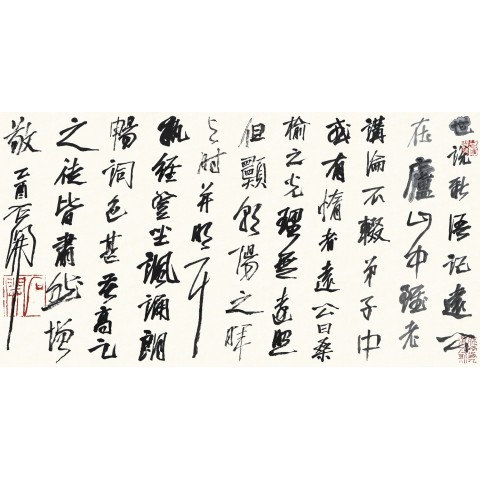 世說新语记遠公
在廬山中雖老
講論不輟弟子中
或有惰者遠公曰桑
榆之光理無遠照
但願朝陽之暉
与时并明耳
執經登坐諷誦朗
暢詞色甚苦高足
之徒皆肅然增
敬
乙酉石開